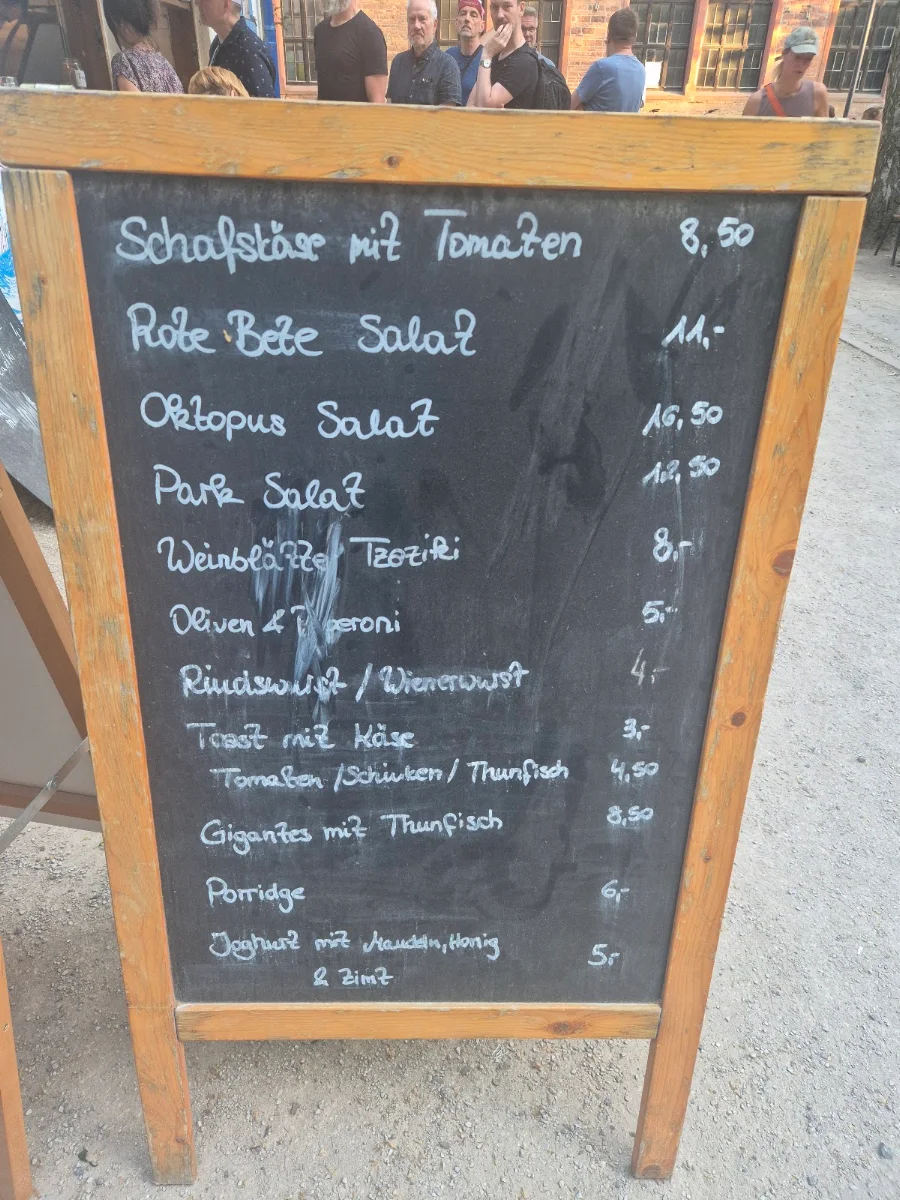 Schafskäse mit Tomaten 8,50
Rote Bete Salat 11,-
Oktopus Salat 16,50
Park Salat 12,50
Weinblätter Tzaziki 8,-
Oliven & Peperoni 5,-
Rindswurst / Wienerwurst 4,-
Toast mit Käse 3,-
Tomaten / Schinken / Thunfisch 4,50
Gigantes mit Thunfisch 8,50
Porridge 6,-
Joghurt mit Mandeln, Honig
& Zimt 5,-